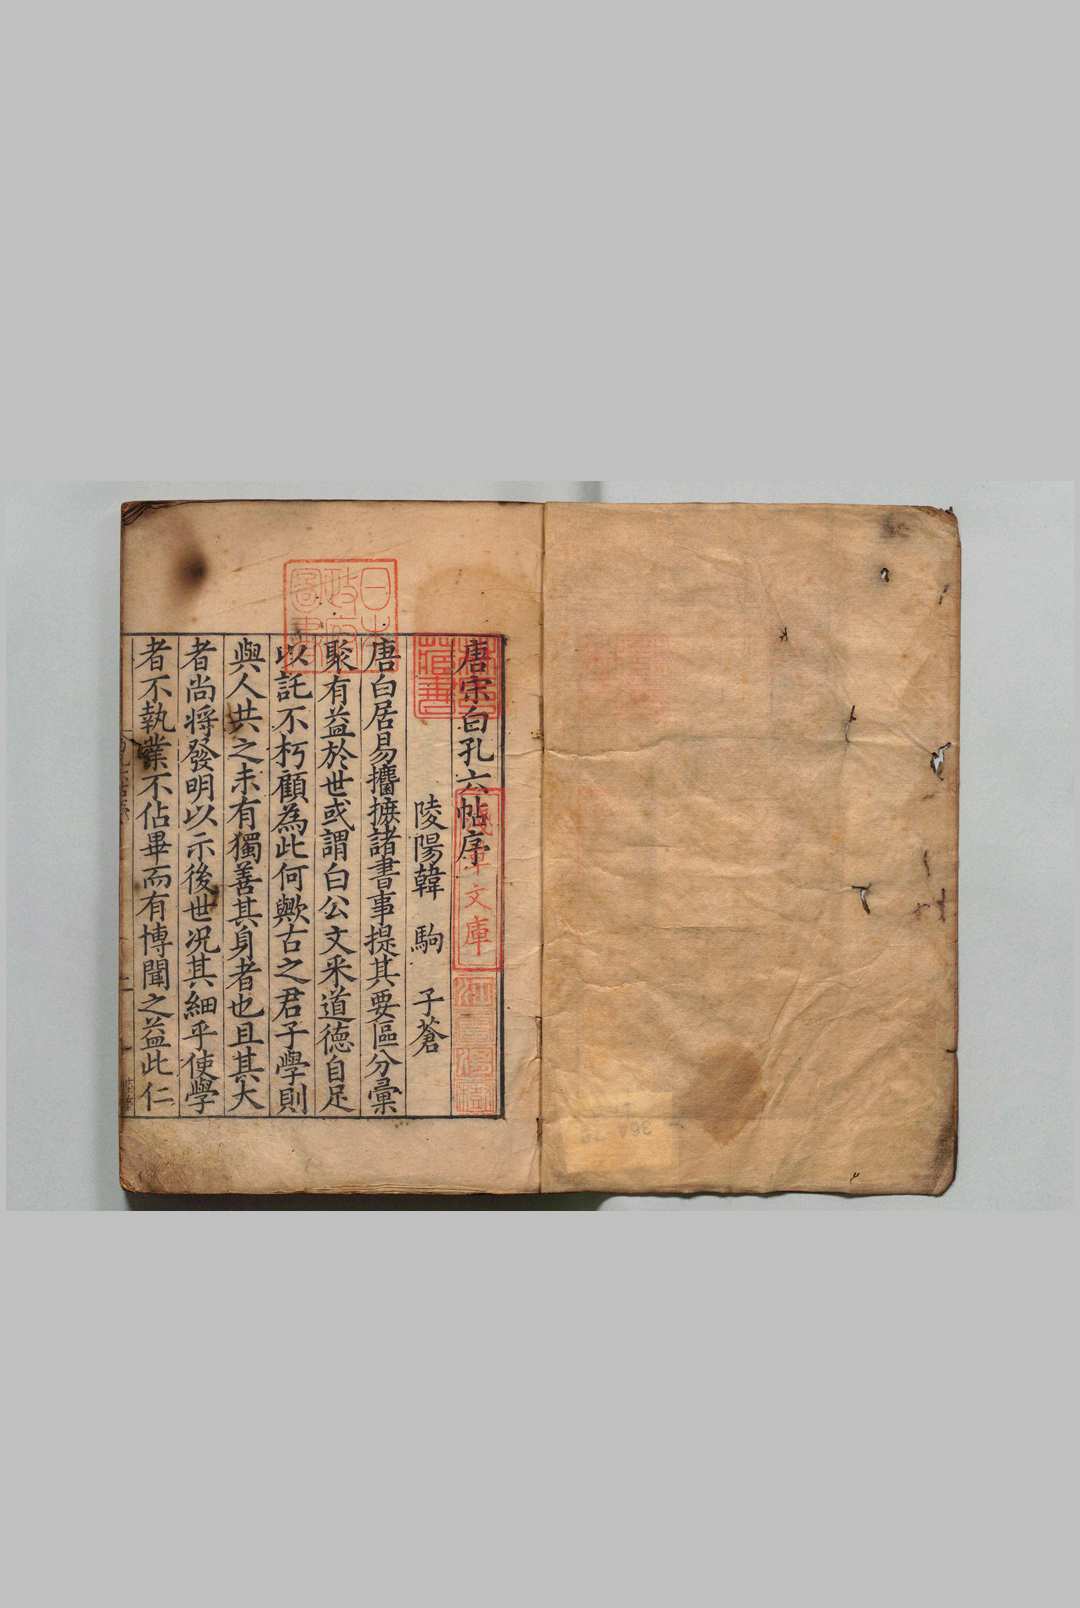 唐宋白孔六帖序
陵陽韓　駒　子蒼
唐白居易攟摭諸書事提其要區分彙
聚有益於世或謂白公文采道德自足
以託不朽顧為此何歟古之君子學則
與人共之未有獨善其身者也且其大
者尚將發明以示後世况其細乎使學
者不執業不佔畢而有博聞之益此仁
日本
政府
圖書
淺草文庫